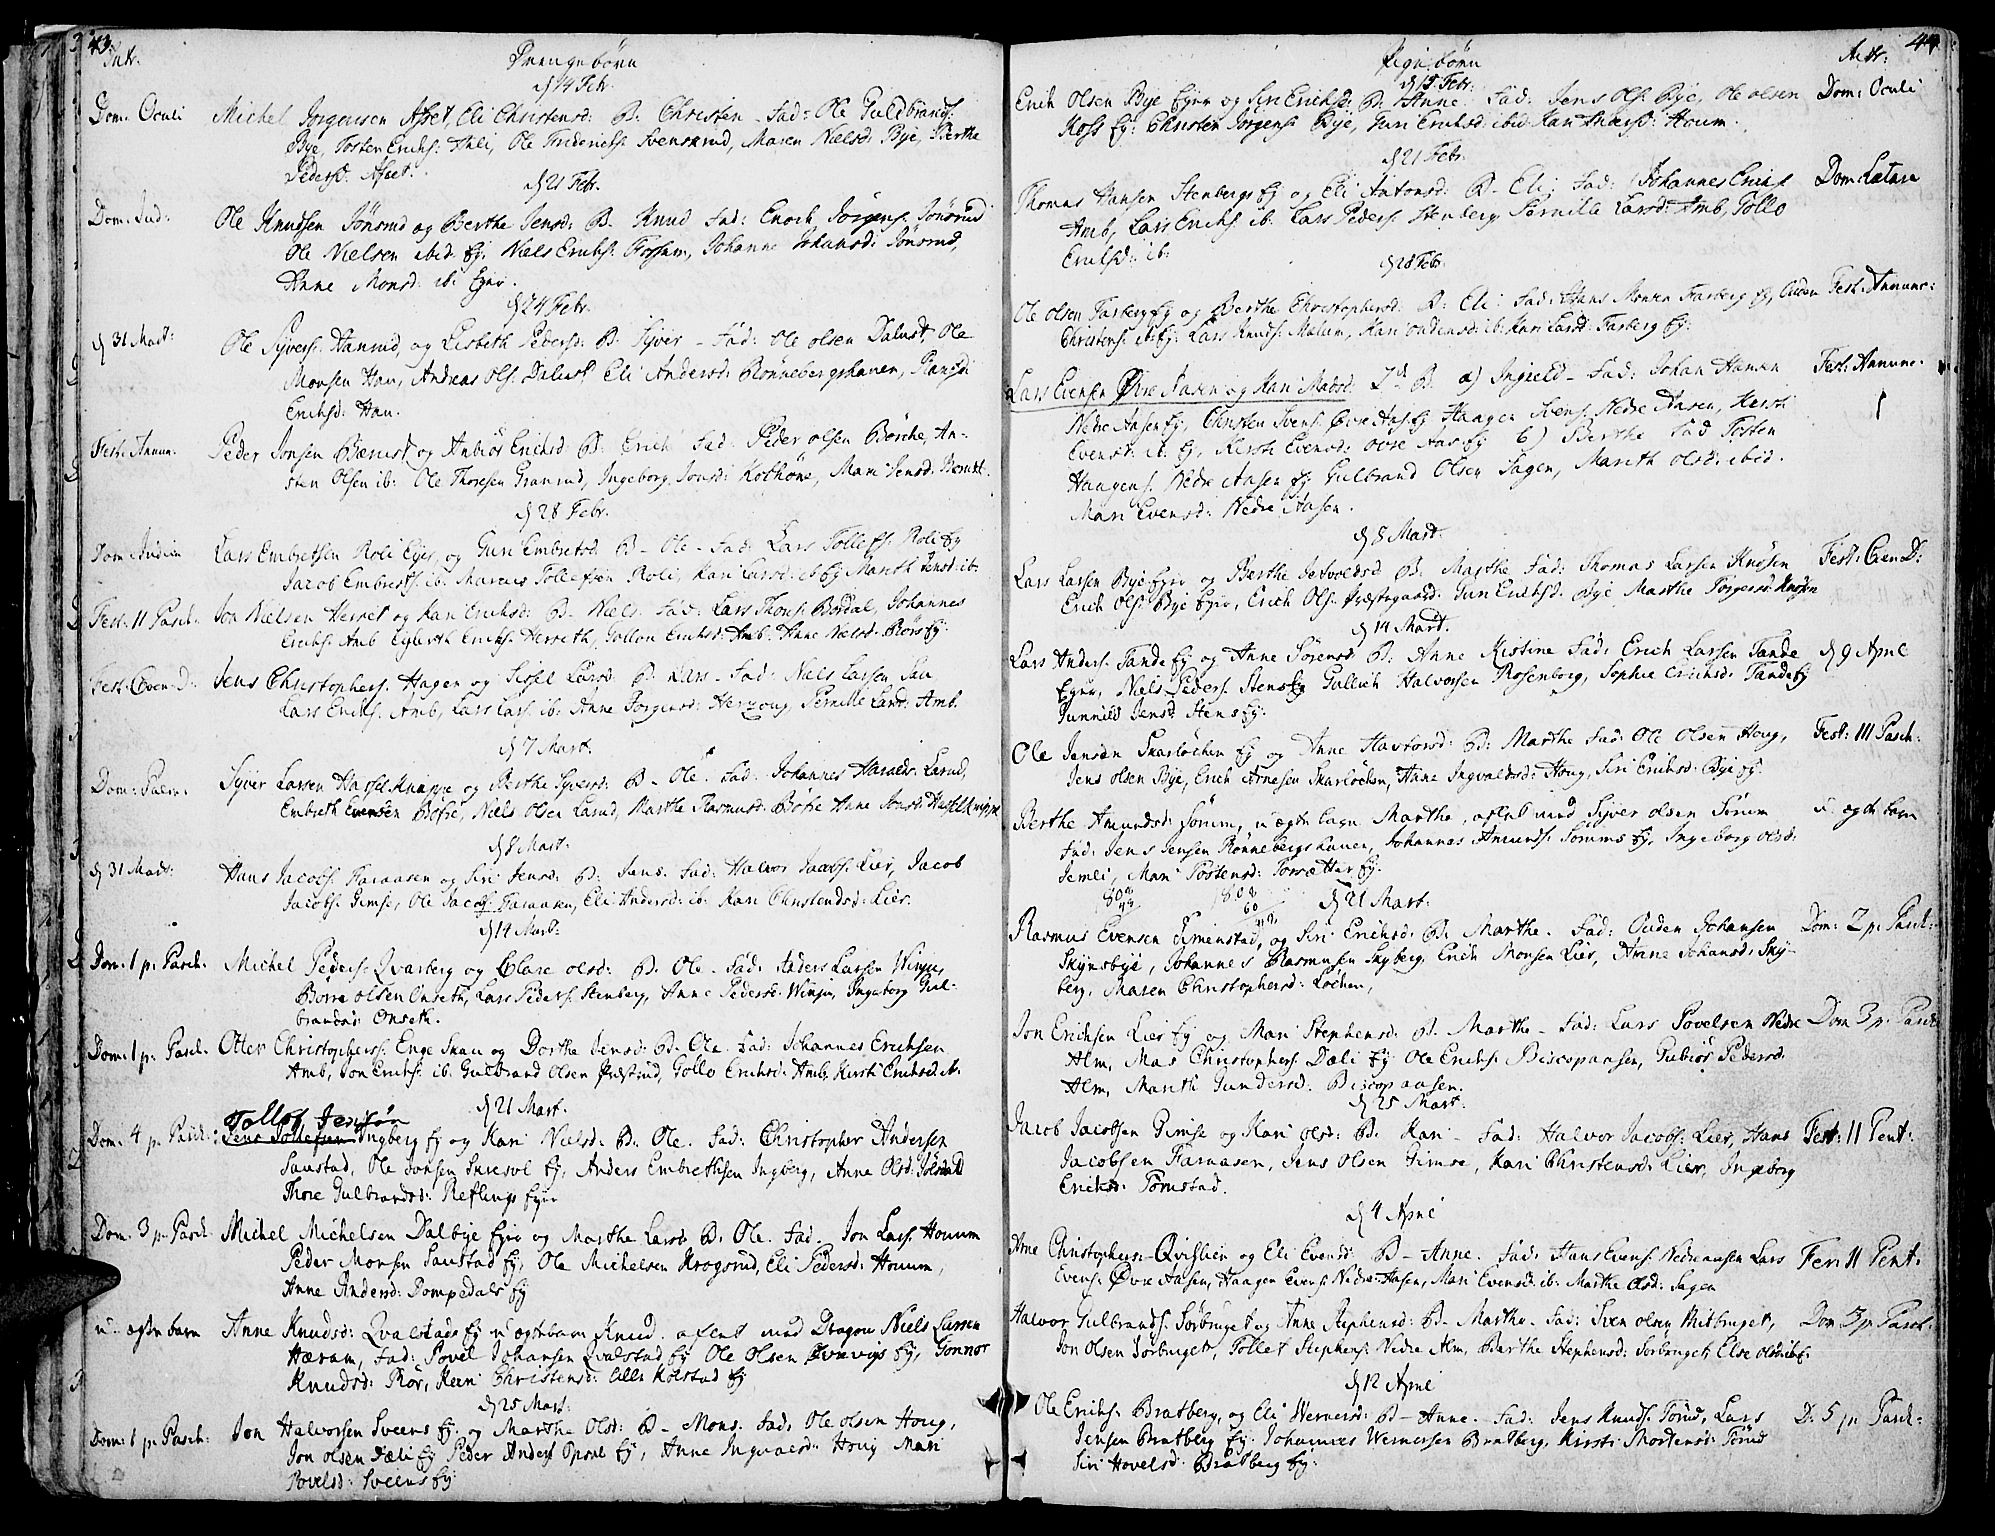 43.
Intr.
Drengebørn
d 14 Febr.
Dom. Oculi Michel Jørgensen Afset, Eli Christensd: B. Christen - Fad: Ole Guldbrands.
Bye, Tosten Erichs: Ihli, Ole Friderichs: Svensrud, Maren Nielsd: Bye, Berthe
Pedersd: Afset.
d 21 Febr.
Dom: Jud: Ole Knudsen Jønsrud og Berthe Jensd: B. Knud Fad: Enoch Jørgens: Jønsrud
Ole Nielsen ibid. Ej. Niels Erichs: Fossum, Johanne Johansd: Jønsrud,
Anne Monsd: ib: Ejer.
d 24 Febr.
d 31 Mart: Ole Syvers: Hanrud, og Lisbeth Pedersd: B. Syver - Fad: Ole Olsen Dalust, Ole
Monsen Hau, Andreas Ols: Dalust Eli Andersd: Rønnebergshauen,
Erichsd: Hau.
Fest: Annun. Peder Jonsen Bærust og Anbiør Erichsd B: Erich Fad: Peder Olsen Børche, An-
sten Olsen ib: Ole Thoresen Granrud, Ingeborg Jonsd: Kolhøne, Mari Jensd: Berust.
d 28 Febr.
Dom: Judica Lars Embretsen Roli Ejer, og Guri Embretsd: B - Ole - Fad: Lars Tollefs: Roli Ej
Jacob Embrets: ib: Marcus Tollefsen Roli, Kari Larsd: ib Ej Marith Jensd: ib:
Fest: II Pasch: Jon Nielsen Herret og Kari Erichsd: B - Niels. Fad: Lars Thors: Bordal, Johannes
Erichs: Amb Engbreth Erichs: Herreth, Gollou Erichsd: Amb. Anne Nielsd: Rørs Ej.
Fest: Coen: D: Jens Christophers: Hagen og Sissel Larsd: B. Lars - Fad: Niels Larsen Lau
Lars Erichs: Amb, Lars Lars: ib: Anne Jørgensd: Herzoug, Pernille Larsd: Amb.
d 7 Mart.
Dom: Palm: Syver Larsen Hasselknippe og Berthe Syversd: B - Ole. Fad: Johannes Haralds: Larud,
Embreth Evensen Bøfre, Niels Olsen Larud, Marthe Rasmusd: Bøfre Anne Jonsd: Hasselknippe
d 8 Mart:
d 31 Mart: Hans Jacobs: Faraasen og Siri Jensd: B: Jens. Fad: Halvor Jacobs: Lier, Jacob
Jacobs: Gimse, Ole Jacobs: Faraasen, Eli Andersd: ib: Kari Christensd: Lier.
d 14 Mart:
Dom: 1 p: Pasch: Michel Peders: Qvarberg og Clare Olsd: B. Ole - Fad: Anders Larsen Winju,
Børre Olsen Onseth, Lars Peders: Stenberg, Anne Pedersd: Winju, Ingeborg Gul-
brandsd: Onseth.
Dom: 1 p: Pasch: Otter Christophers: Enge Skau og Dorthe Jensd: B: Ole. Fad: Johannes Erichsen
Amb, Jon Erichs: ib: Gulbrand Olsen Præstrud, Gollo Erichsd: Amb, Kirsti Erichsd: ib.
d 21 Mart.
Tollof Jensøn
Dom. 4 p: Pasch: Jens Tollefsen Ingberg Ej og Kari Nielsd: B: Ole. Fad: Christopher Andersen
Saustad, Ole Jonsen Skresvol Ej, Anders Embrethsen Ingberg, Anne Olsd:
Thore Gulbrandsd: Reflings Ejer
Dom: 3 p: Pasch: Michel Michelsen Dalbye Ejer og Marthe Larsd: B: Ole. Fad. Jon Lars: Houm
Peder Monsen Saustad Ej, Ole Michelsen Krogsrud, Eli Pedersd: Houm,
Anne Andersd: Pompedals Ej
u-ægte barn Anne Knudsd: Qvalstads Ej u ægte barn Knud. aflet med Dragon Niels Larsen
Hæram, Fad: Povel Johansen Qvalstad Ej Ole Olsen Ej, Gonnor
Knudsd: Rør, Kari Christensd: Lille Kolstad Ej
d 25 Mart:
Dom: 1 p: Pasch: Jon Halvorsen Sveens Ej. og Marthe Olsd: B - Mons. Fad: Ole Olsen Houg,
Jon Olsen Dæli Ej Peder Anders Opsal Ej, Anne Ingvalds: Houg Mari
Povelsd: Sveens Ej.
44
Pigebørn
Intr:
d 15 Febr.
Erich Olsen Bye Ejer og Siri Erichsd: B: Anne. Fad: Jens Ols: Bye, Ole Olsen Dom: Oculi
Koss Ej: Christen Jørgens: Bye, Guri Erichsd: ibid. Kari Houm.
d 21 Febr.
Thomas Hansen Stenbergs Ej og Eli Antonsd: B - Eli. Fad: Johannes Erichs: Dom: Lætare
Amb, Lars Erichs: ib. Lars Peders: Stenberg Pernille Larsd: Amb, Gollo
Erichsd: ib:
d 28 Febr.
Ole Olsen Farberg Ej og Berthe Christophersd: B: Eli Fad: Hans Monsen Farberg Ej, Ouden Fest: Annunc:
Christens: ib Ej: Lars Knuds: Malum, Kari Oudensd: ib: Kari Larsd: Farberg Ej:
Lars Evensen Øvre Aasen og Kari Madsd: 2 B. a) Ingrild - Fad: Johan Hansen Fest: Annunc.
Nedre Aasen Ej, Christen Svens: Øvre Aas Ej Haagen Svens: Nedre Aasen, Kersti
Evensd: ib: Ej, Kersti Evensd: Øvre Aas Ej b) Berthe Fad Tosten
Haagens: Nedre Aasen Ej Gulbrand Olsen Sagen, Marith Olsd: ibid.
Mari Evensd: Nedre Aasen.
d 8 Mart.
Lars Larsen Bye Ejer og Berthe Jetvoldsd: B: Marthe Fad: Thomas Larsen Knøsen Fest: Coen D:
Erich Ols: Bye Ejer, Erich Ols: Præstegaard. Guri Erichsd: Bye Marthe Jørgensd: Knøsen
d 14 Mart.
Lars Anders: Tande Ej og Anne Sørensd: B: Anne Kistine Fad: Erich Larsen Tande d 9 April
Ejer, Niels Peders: Stens Ej Gullich Halvorsen Rosenborg, Sophie Erichsd: Tande Ej
Gunnild Jensd: Stens Ej.
Ole Jensen Skarløchen Ej og Anne Havborsd: B: Marthe Fad: Ole Olsen Houg, Fest: III Pasch:
Jens Olsen Bye, Erich Arnesen Skarløchen, Anne Ingvaldsd: Houg, Siri Erichsd: Bye Ej.
Berthe Amundsd: Sørum, u ægte barn Marthe, aflet med Syver Olsen Sørum u-ægte barn
Fad: Jens Jensen Rønnebergshauen, Johannes Amunds: Sørums Ej, Ingeborg Olsd:
Semlei, Mari Tostensd: Torsætter Ej.
1808 1808
48 60
d 21 Mart:
Rasmus Evensen Simenstad, og Siri Erichsd: B: Marthe. Fad: Ouden Johansen Dom: 2 p: Pasch:
Skynsbye, Johannes Rasmusen Skyberg, Erich Monsen Lier, Anne Johansd: Sky-
berg, Maren Christophersd: Løchen,
Jon Erichsen Lier Ej og Mari Stephensd: B. Marthe - Fad: Lars Povelsen Nedre Dom 3 p: Pasch
Alm, Mas Christophers: Dæli Ej Ole Erichs: Biscopaasen, Gubiør Pedersd:
Alm, Marith Gundersd: Biscopaasen.
d 25 Mart.
Jacob Jacobsen Gimse og Kari Olsd: B: Kari - Fad: Halvor Jacobs: Lier, Hans Fest: II Pent:
Jacobsen Faraasen, Jens Olsen Gimse, Kari Christensd: Lier, Ingeborg
Erichsd: Tømstad.
d 4 April
Arne Christophers: Qvislien og Eli Evensd: B - Anne. Fad: Hans Evens: Nedreaasen Lars Fer: II Pent:
Evens: Øvre Aasen, Haagen Evens: Nedre-Aasen, Mari Evensd: ib: Marthe Olsd: Sagen
Halvor Gulbrands: Sørbryget og Anne Stephensd: B - Marthe - Fad: Sven Olsen Mitbryget, Dom 3 p: Pasch:
Jon Olsen Sørbryget, Tollef Stephens: Nedre Alm, Berthe Stephensd: Sørbryget, Else Olsd: ib.
d 12 April
Ole Erichs: Bratberg, og Eli Wernersd: B - Anne. Fad: Jens Knuds: Tørud, Lars D: 5 p: Pasch:
Jensen Bratberg Ej: Johannes Wernersen Bratberg, Kirsti Mortensd: Tørud
Siri Hovelsd: Bratberg Ej: